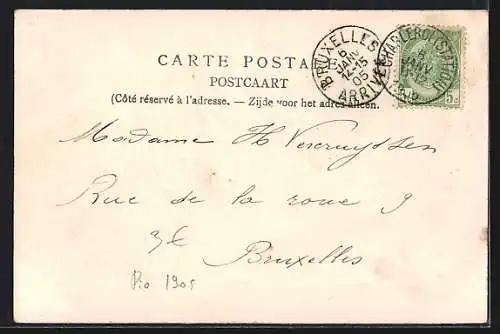 CARTE POSTA
POSTCAART
(Côté réservé à l'adresse. — Zijde voor het adres alleen.
BRUXELLES
6
JANV
12-15
05
ARRIVEE
CHARLEROI (STATION)
6
JANV
5c
Madame H Vercruyssen
Rue de la roue 9
Bruxelles
Pio 1905